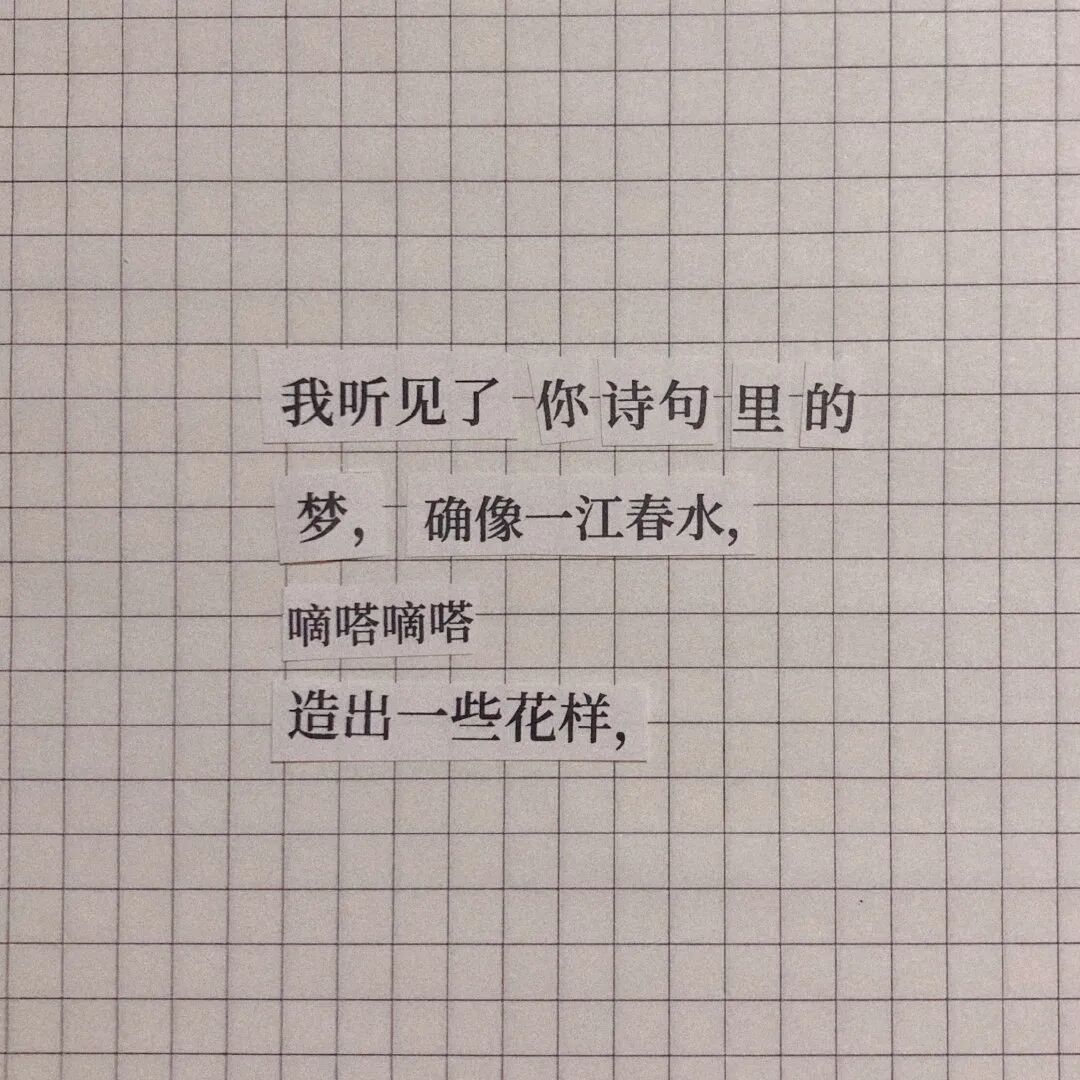 我听见了 你诗句里的
梦，确像一江春水，
嘀嗒嘀嗒
造出一些花样，